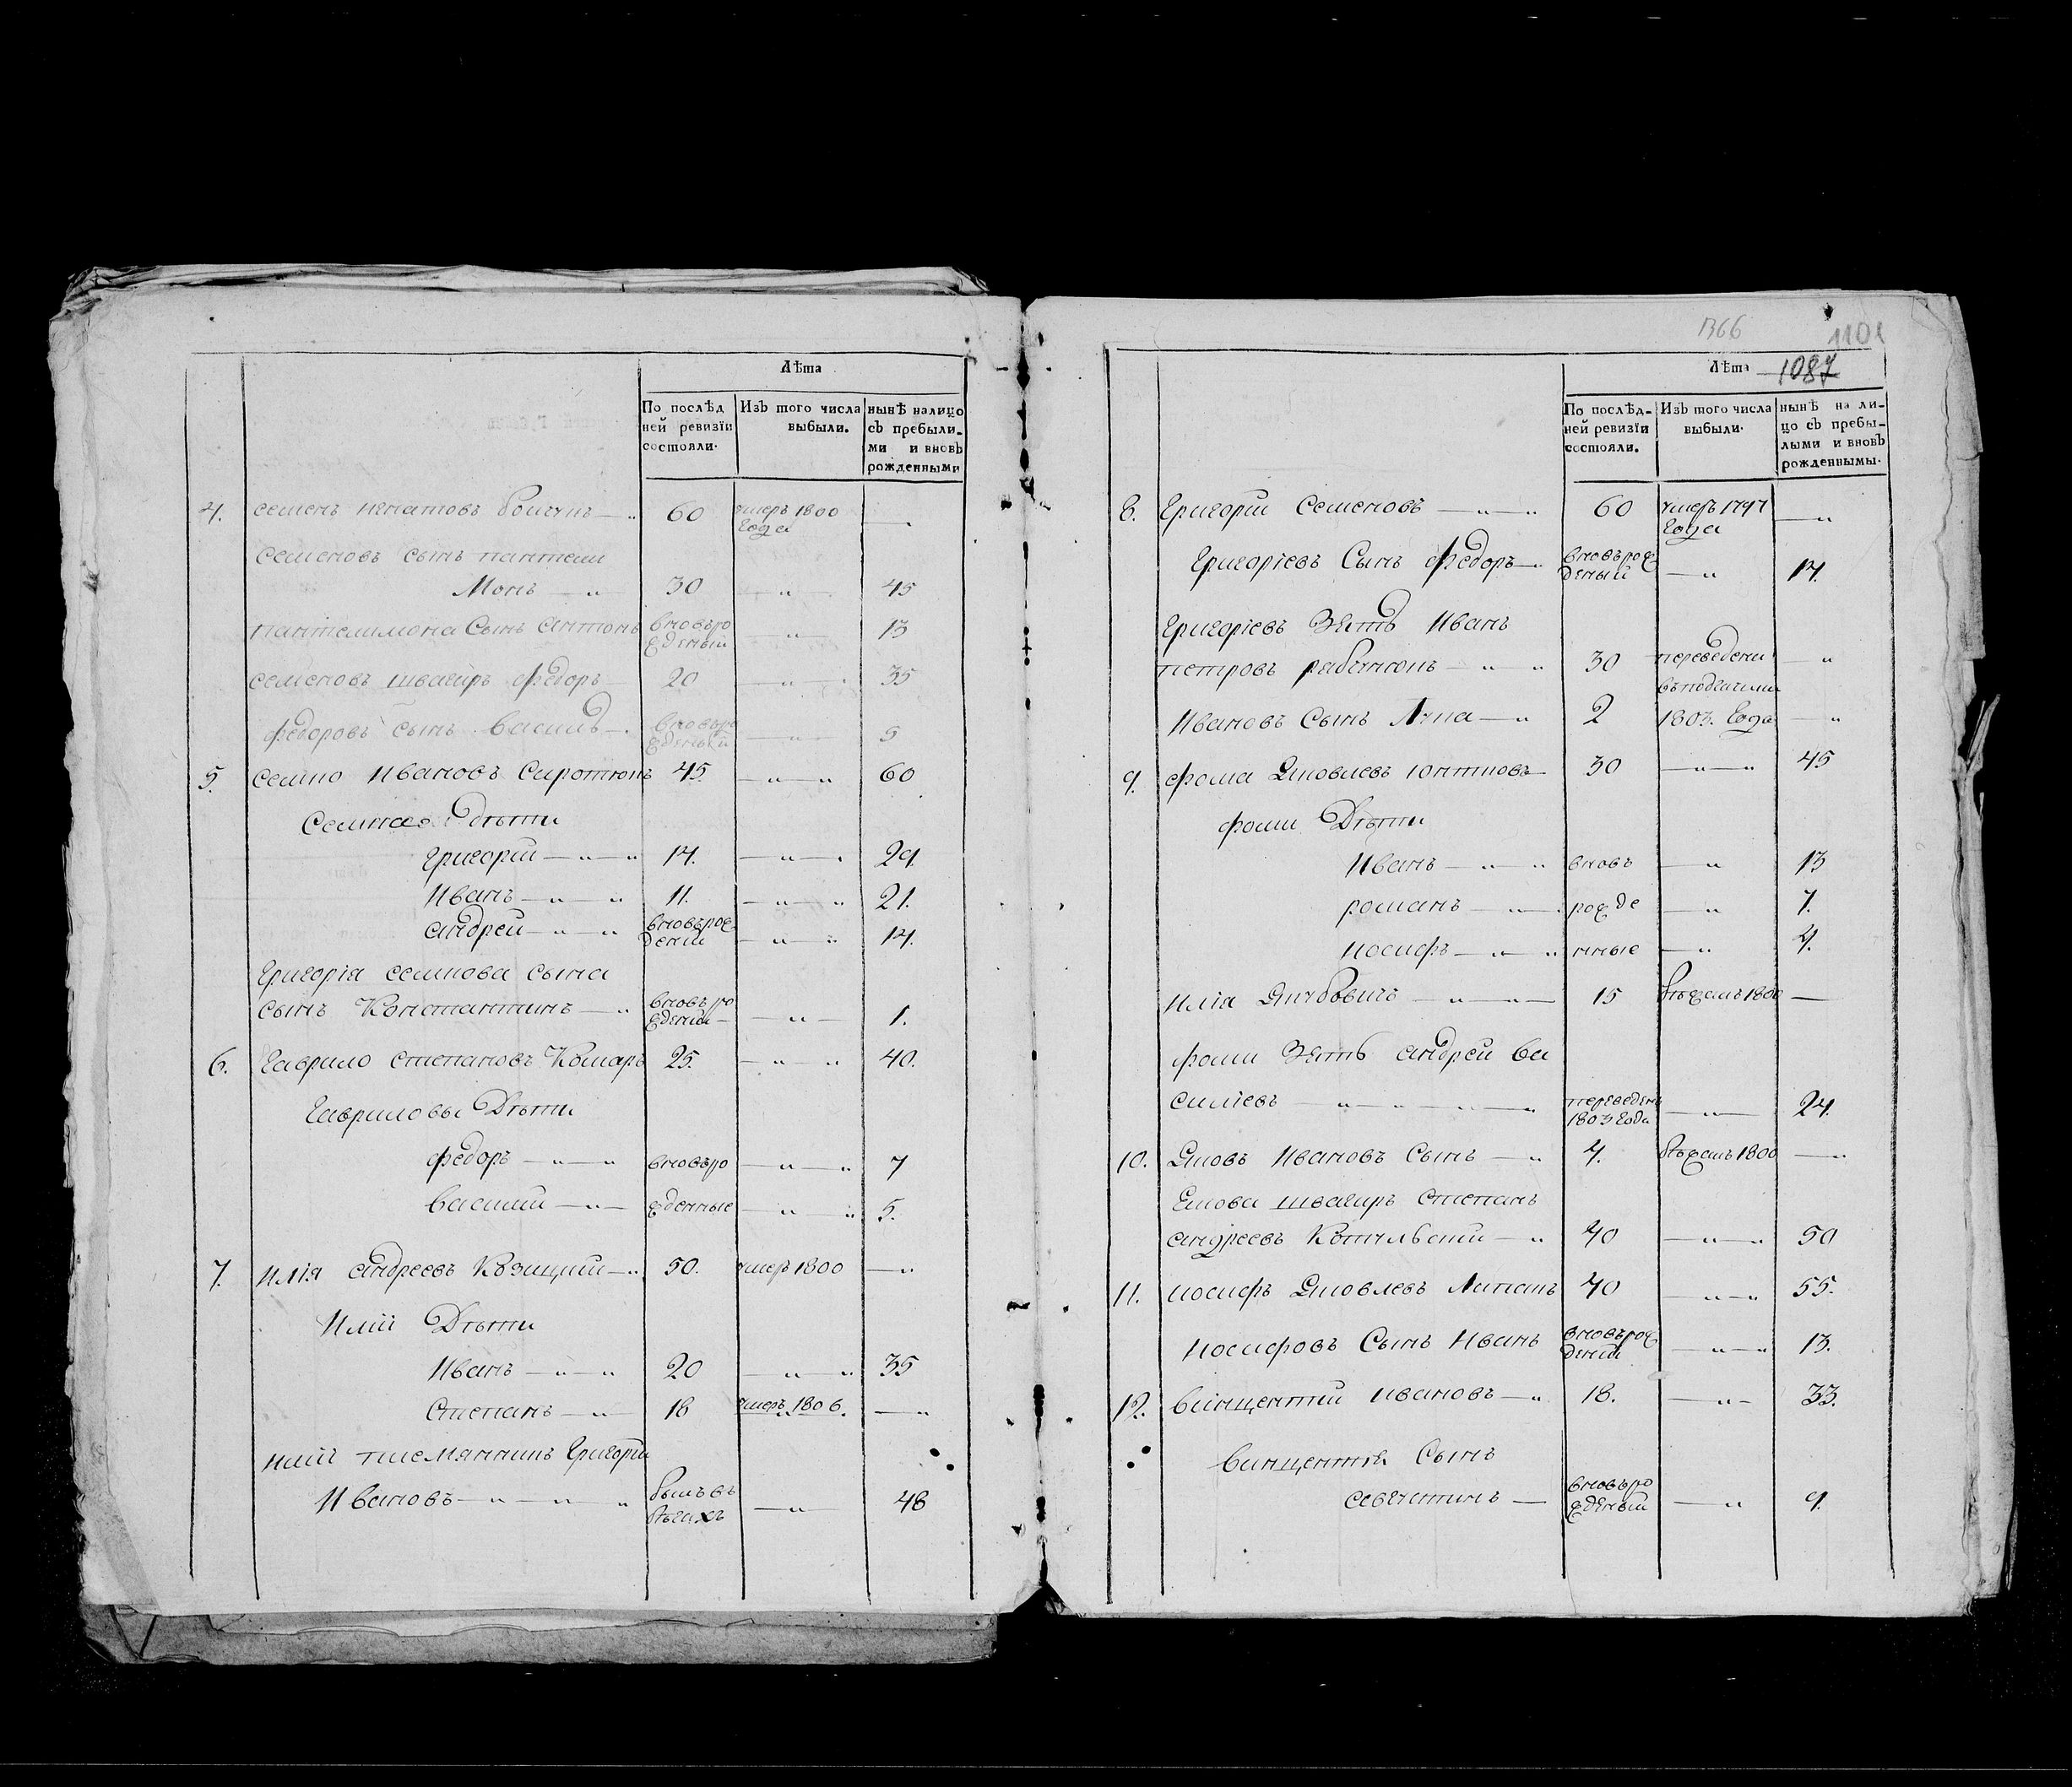 Лѣта
По послѣд
ней ревизїи
состояли.
Изъ того числа
выбыли.
нынѣ налицо
съ пребыли-
ми и вновь
рожденными
4. семенъ игнатовъ — 60 умеръ 1800 —
года
семеновъ сынъ пантели
монъ — „ 30 — „ — 45
пантелимона сынъ антонъ вновъро — „ — 13
жденый
семеновъ швагиръ федоръ — 20 — „ — 35
федоровъ сынъ василь — вновъро — „ — 5
жденый
5. семко ивановъ сиротюкъ 45 — „ — „ 60
семка дѣти
григорій — „ — „ 14. — „ — 29
иванъ — „ — „ 11. — „ — „ 21.
андрей — „ — „ вновърож — „ — „ 14.
деній
григорія семкова сына
сынъ константинъ — „ вновъро — „ — 1.
жденій
6. гаврило степановъ комаръ 25. — „ — „ 40.
гавриловы дѣти
федоръ — „ — „ вновъро — „ — „ 7
василий — „ — жденные — „ — „ 5.
7. илія андреевъ козицкий — „ 50. умеръ 1800 — „
илій дѣти
иванъ — „ — „ 20 — „ — „ 35
степанъ — „ — 18 умеръ 1806. — „
илій племянникъ григорій
ивановъ — „ — „ — „ былъ въ — „ 48
бѣгахъ
1366
1101
1087
Лѣта
По послѣд-
ней ревизїи
состояли.
Изъ того числа
выбыли.
нынѣ на ли-
цо съ пребы-
лыми и вновь
рожденнымы.
8. григорій семеновъ — „ — „ 60 умеръ 1797 — „
года
григоріевъ сынъ федоръ — „ вновърож — „ 14.
деный
григоріевъ зять иванъ
петровъ — „ — „ 30 переведени — „
ивановъ сынъ — „ 2 1803. года — „
9. фома яковлевъ — 30 — „ — „ 45
фоми дѣти
иванъ — „ — „ вновъ — „ 13
романъ — „ — рожде — „ 7.
иосифъ — „ — „ нные — „ 4.
илія — „ — „ — 15 бѣжалъ 1800 —
фоми зять андрей ва
силіевъ — „ „ — „ — „ переведенъ — „ — 24.
1803 года
10. яковъ ивановъ сынъ — „ 4. бѣжалъ 1800 — „
якова швагиръ степанъ
андреевъ — „ 40 — „ — „ 50
11. иосифъ яковлевъ 40 — „ — „ 55.
иосифовъ сынъ иванъ вновърож — „ — „ 13.
деній
12. винцентий ивановъ — „ 18. — „ — 33.
винцентія сынъ
вновъро — „ 9.
жденый